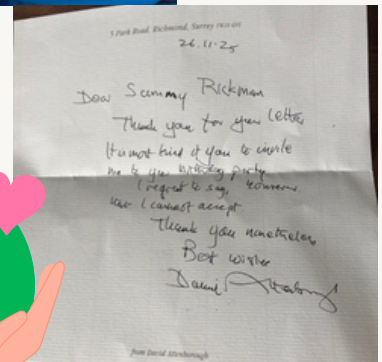 5 Park Road, Richmond, Surrey
26.11.25
Dear Sammy Rickman
Thank you for your letter
It is most kind of you to invite
me to your birthday party
I regret to say, however,
that I cannot accept
Thank you nonetheless
Best wishes
David Attenborough
from David Attenborough